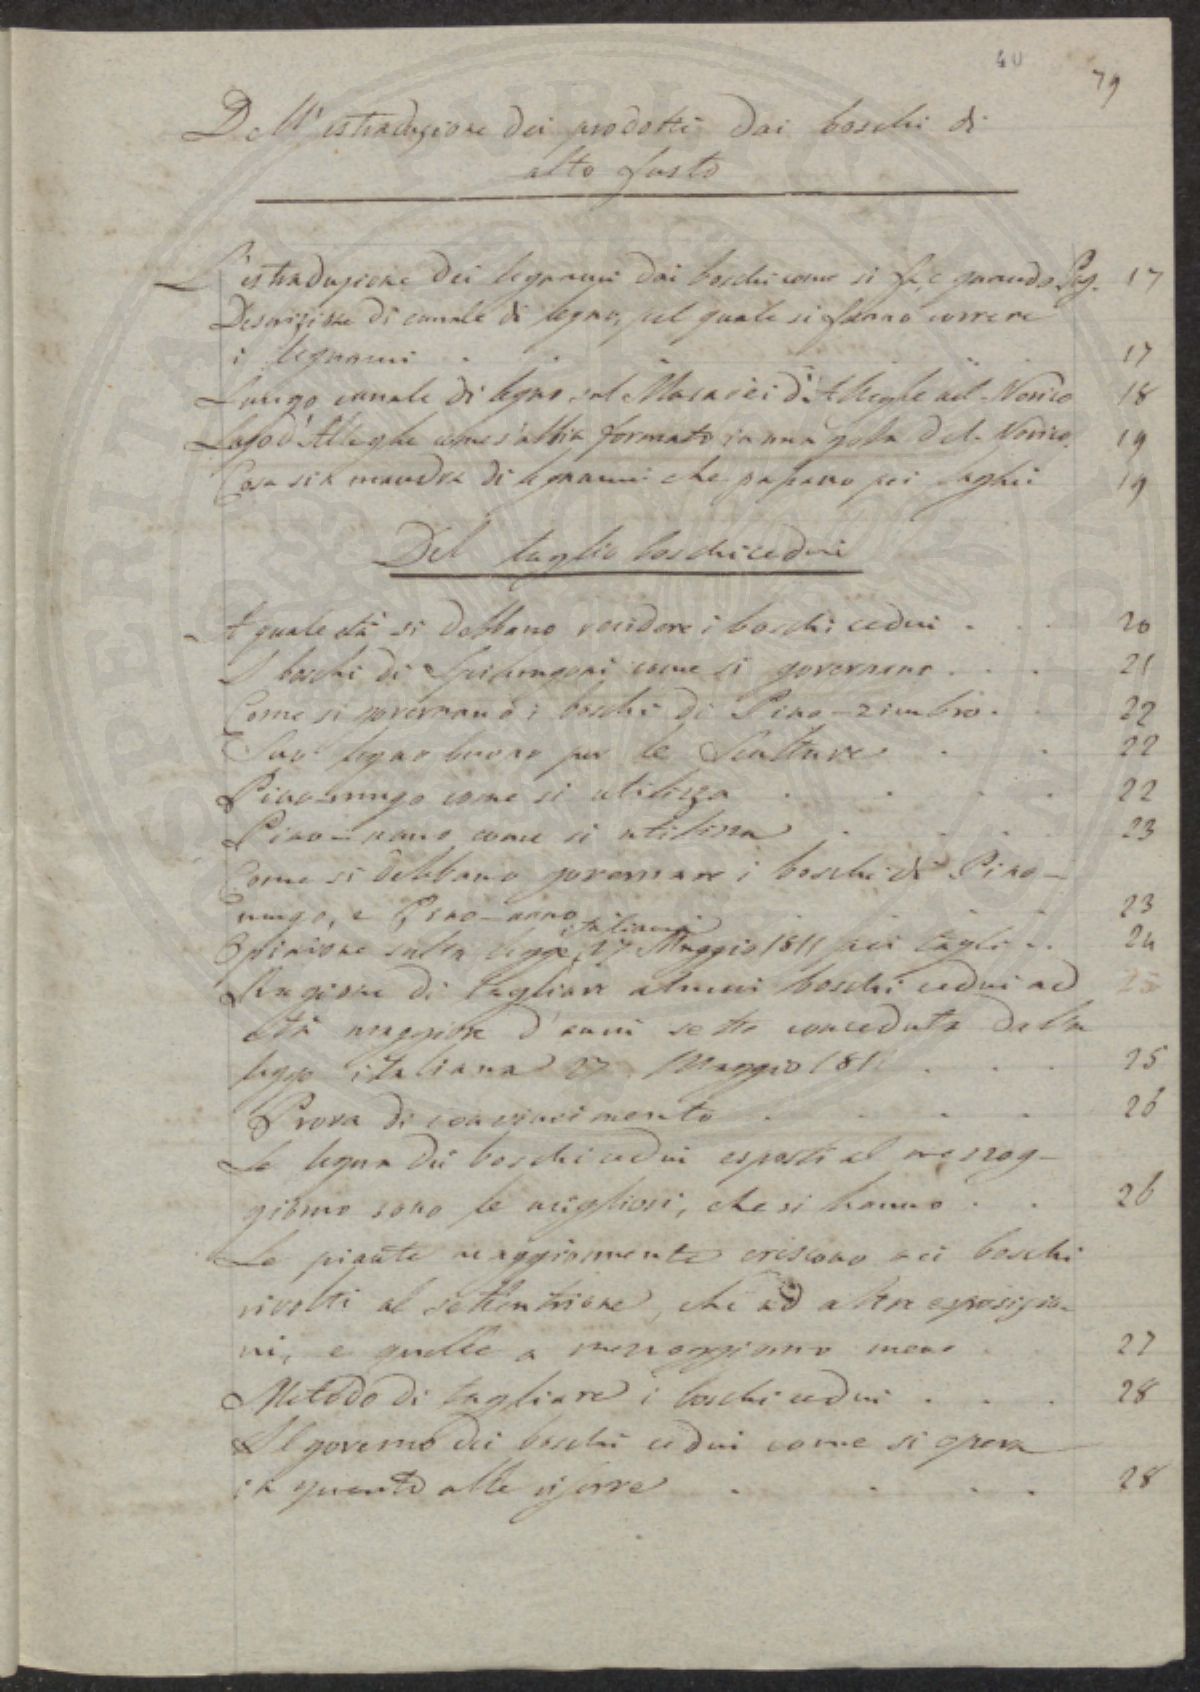 40
79
Dell'estraduzione dei prodotti dai boschi di
alto fusto
L'estraduzione dei legnami dai boschi come si fa, e quando Pag. 17
Descrizione di canale di legno, pel quale si fanno correre
i legnami . . . . . . 17
Lungo canale di legno sul Masarèi d'Alleghe nel Norico 18
Lago d'Alleghe come s'abbia formato in una gola del Norico. 19
Cosa sia mandra di legnami che passano pei laghi 19
Del taglio boschi cedui
A quale età si debbano recidere i boschi cedui . . . 20
I boschi di come si governano . . . 21
Come si governano i boschi di Pino-zimbro . . 22
Suo legno buono per le Sculture . . . 22
Pino-mugo come si utilizza . . . . 22
Pino-nano come si utilizza . . . 23
Come si debbano governare i boschi di Pino-
mugo, e Pino-nano . . . . 23
Opinione sulla legge italiana 27 Maggio 1811 pei tagli . . 24
Ragione di tagliare alcuni boschi cedui ad 25
età maggiore d'anni sette conceduta dalla
legge italiana 27 Maggio 1811 . . . 25
Prova di convincimento . . . . 26
Le legna dei boschi cedui esposti al mezzog-
giorno sono le migliori, che si hanno . . 26
Le piante maggiormente crescono nei boschi
rivolti al settentrione, che ad altre esposizio-
ni, e quelle a mezzoggiorno meno . 27
Metodo di tagliare i boschi cedui . . . 28
Il governo dei boschi cedui come si opera
in quanto alle riserve . . . . 28